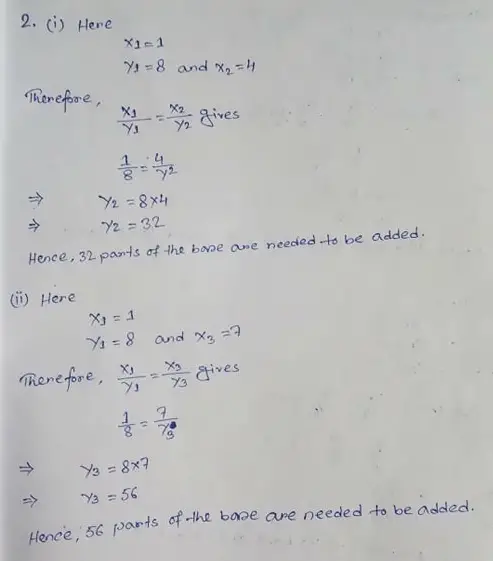 2. (i) Here
x1 = 1
y1 = 8 and x2 = 4
Therefore,
x1/y1 = x2/y2 gives
1/8 = 4/y2
⇒ y2 = 8×4
⇒ y2 = 32
Hence, 32 parts of the base are needed to be added.
(ii) Here
x1 = 1
y1 = 8 and x3 = 7
Therefore, x1/y1 = x3/y3 gives
1/8 = 7/y3
⇒ y3 = 8×7
⇒ y3 = 56
Hence, 56 parts of the base are needed to be added.